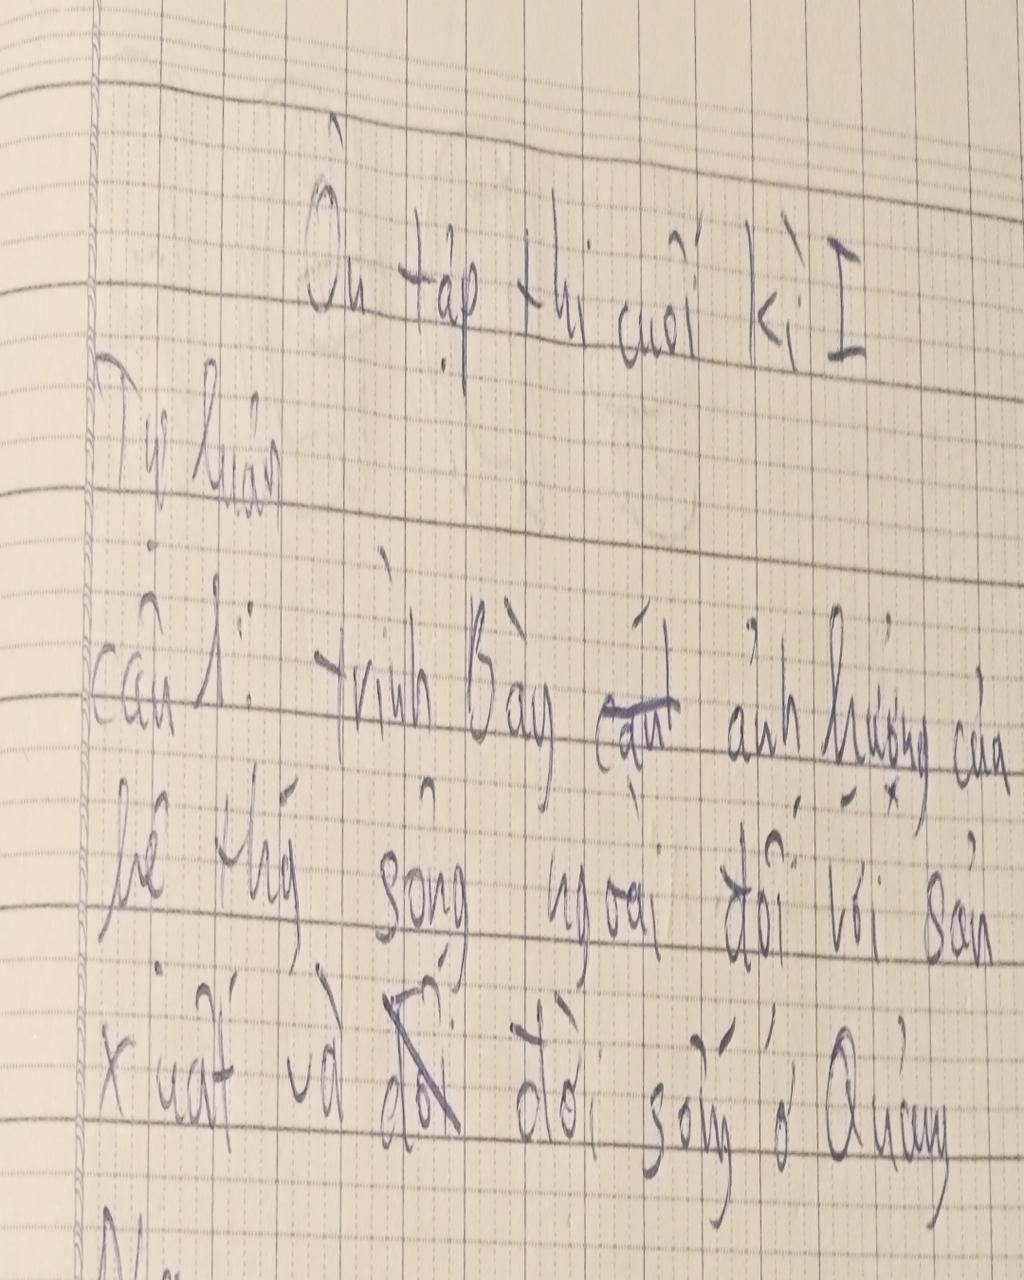 Ôn tập thi cuối kì I
Tự luận
câu 1: trình Bày cát ảnh hưởng của
hệ thống sông ngoài đối với sản
xuất và đối đời sống ở Quảng